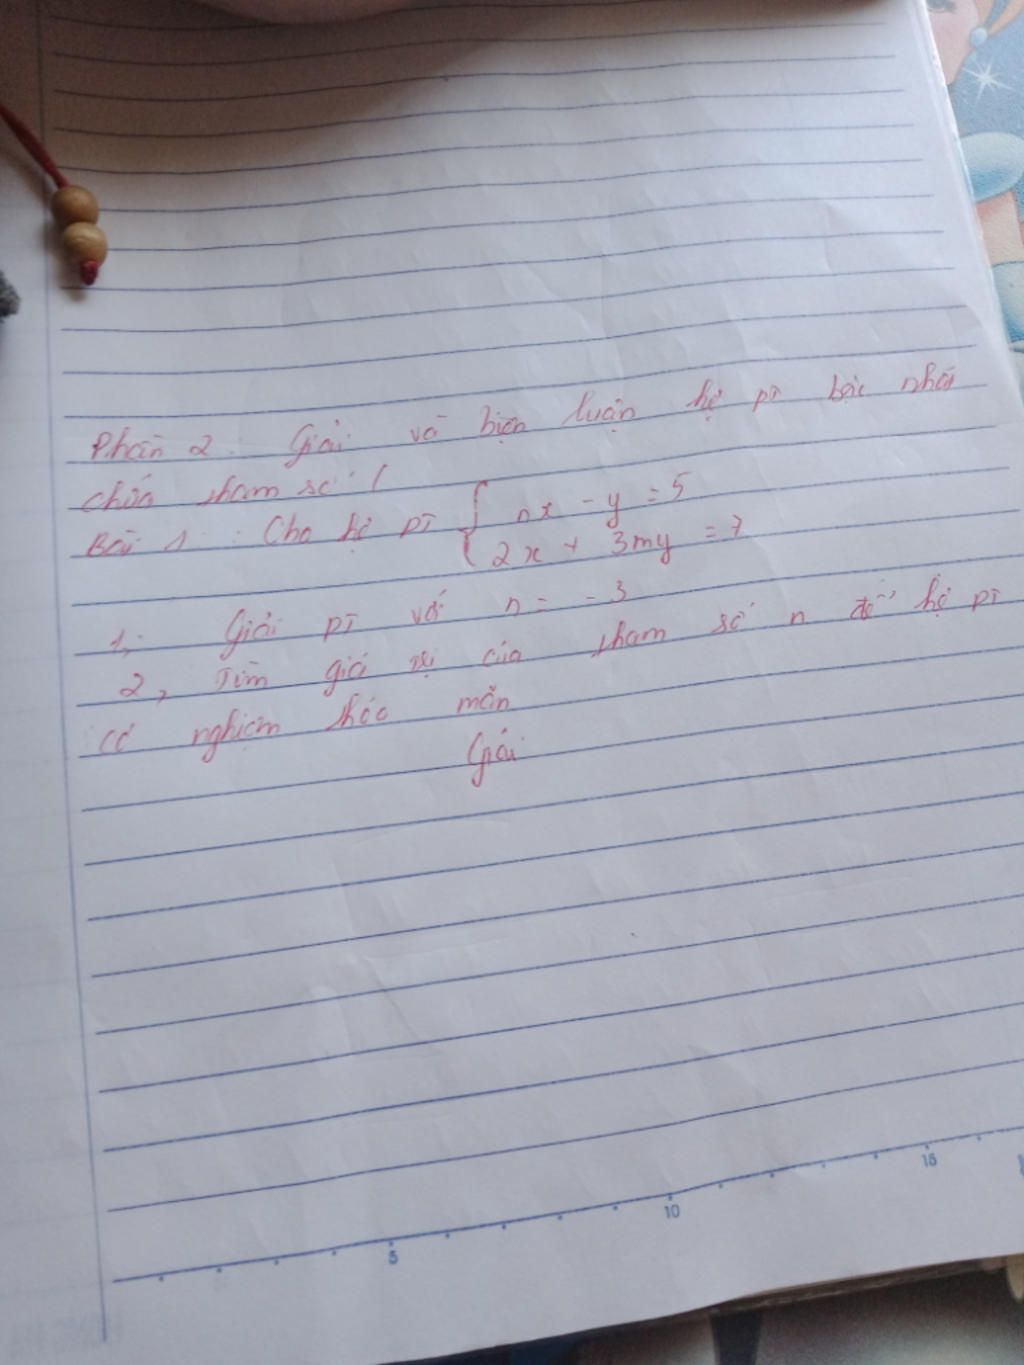 Phần 2: Giải và biện luận hệ pt bậc nhất
chứa tham số (
Bài 1: Cho hệ pt { nx - y = 5
2x + 3my = 7
1, Giải pt với n = -3
2, Tìm giá trị của tham số n để hệ pt
có nghiệm thỏa mãn
Giải
5
10
15